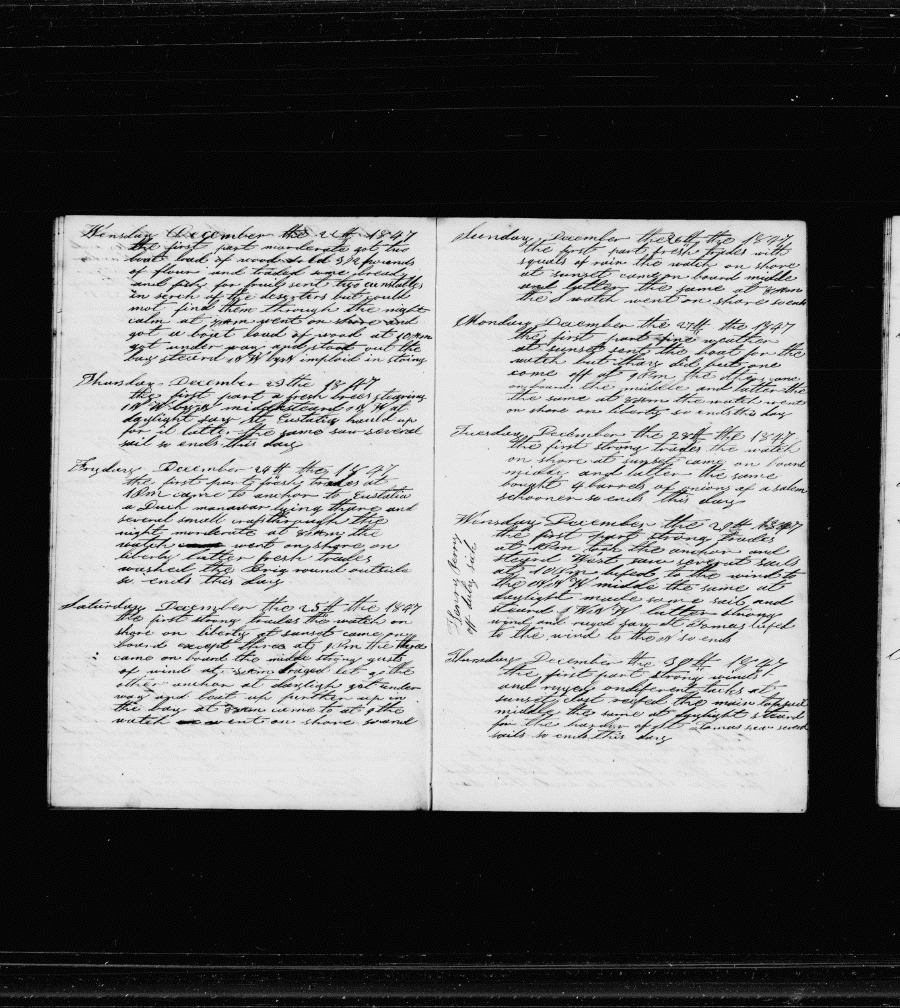 Wensday December the 22th 1847
the first part morderate got two
boat load of wood sold 32 pounds
of flour and traded some bread
and fish for fruit sent two cunstables
in serch of the deserters but could
not find them through the night
calm at 8 am went on shore and
got a boat load of wood at 10 am
got under way and stood out the
bay steard N W by N imploid in
Thursday December 23 the 1847
the first part a fresh breis stearing
N W by N middle steard N W at
daylight saw St Eustatia hauld up
for it latter the same saw several
sail so ends this day
Fryday December 24th the 1847
the first part fresh trades at
1 Pm came to anchor to Eustatia
a Duch manawar lying there and
several small craft through the
night morderate at 8 am the
watch went on shore on
liberty latter fresh trades
washed the brig round outside
so ends this day
Saturday December the 25th the 1847
the first strong trades the watch on
shore on liberty at sunset came on
board except three at 9 Pm the three
came on board the midle strong gusts
of wind at am draged let go the
other anchor at daylight got under
way and beat up further up in
the bay at 8 am came to at 9 the
watch went on shore so end
Sunday December the 26th the 1847
the first part fresh trades with
squals of rain the watch on shore
at sunset came on board midle
and latter the same at 8 am
the S watch went on shore so ends
Monday December the 27th the 1847
the first part fine weather
at sunset sent the boat for the
watch but thay did but one
come off at 8 Pm the
on board the middle and latter the
the same at 8 am the watch went
on shore on liberty so ends this day
Tuesday December the 28th the 1847
the first strong trades the watch
on shore at sunset came on board
midle and latter the same
bought 4 barels of onions of a salem
schooner so ends this day
Wensday December the 29th 1847
the first part strong trades
at Pm took the anchor and
stear West saw several sails
at 10 Pm lufed to the wind to
the N N W midle the same at
daylight made some sail and
steard N W latter strong
wind and ruged saw St Tomas lufed
to the wind to the N so ends
Henry Terry
off duty sick
Thursday December the 30th 1847
the first part strong winds
and ruged on diferent tacks at
sunset close reifed the main topsail
middle the same at daylight steard
for the harbor of St Tomas saw severl
sails so ends this day